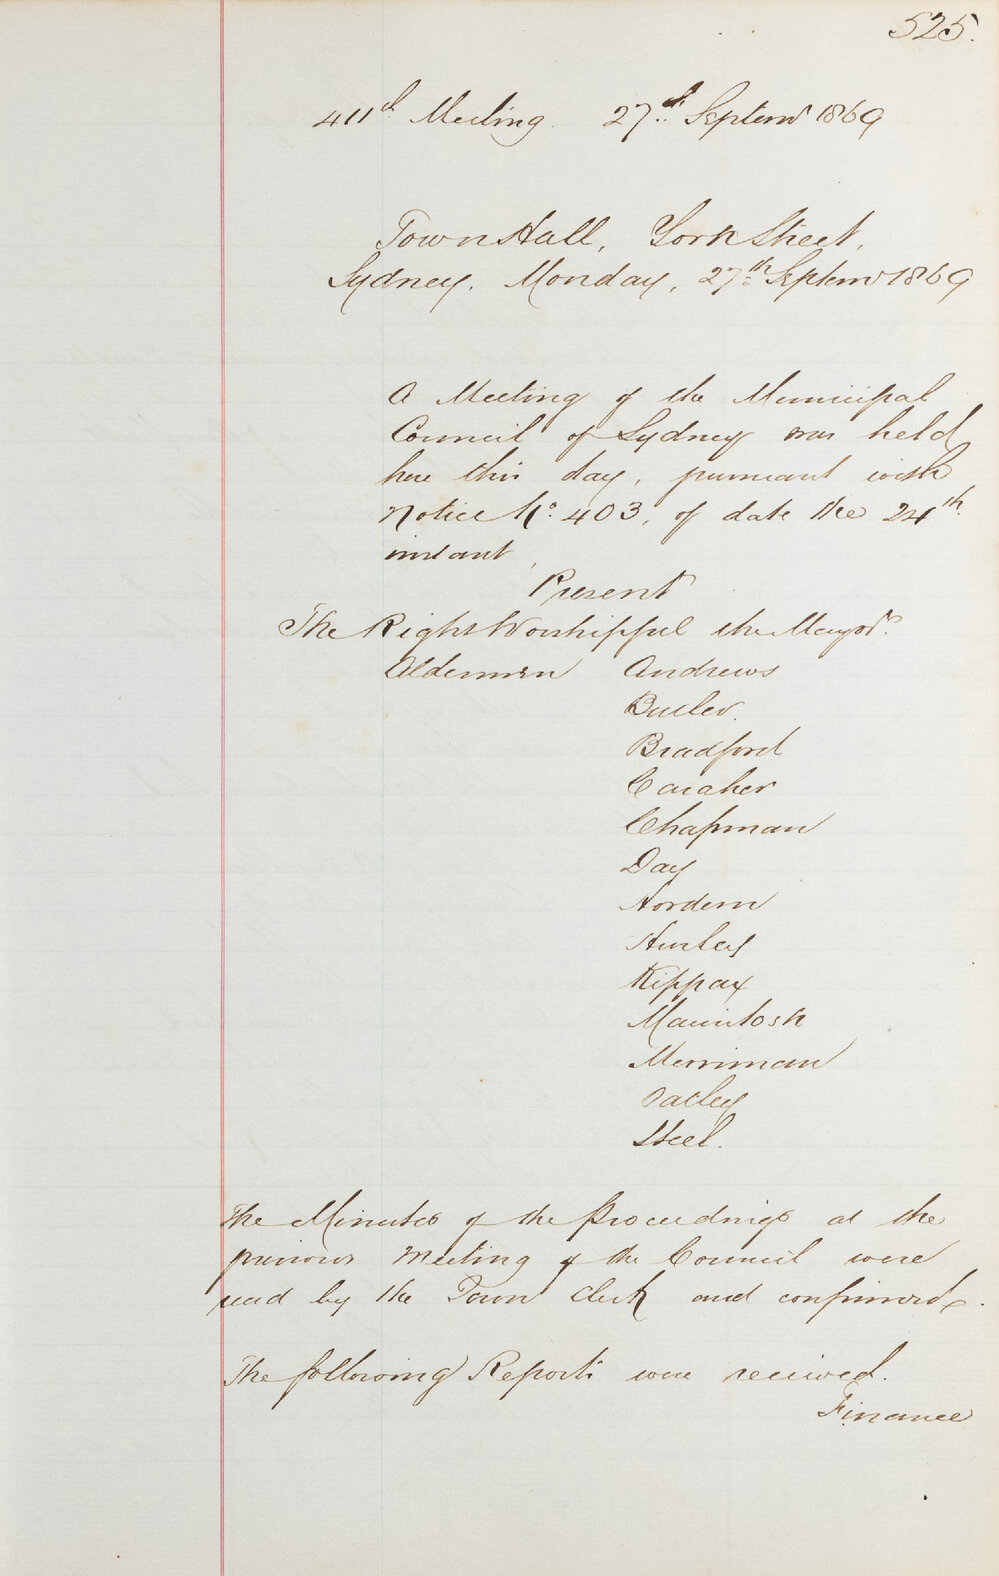 525.
411th Meeting. 27th Septemr 1869
Town Hall, York Street,
Sydney. Monday, 27th Septemr 1869
A Meeting of the Municipal
Council of Sydney was held
here this day, pursuant with
Notice No. 403, of date the 24th
instant,
Present
The Right Worshipful the Mayor.
Aldermen Andrews
Butler.
Bradford
Caraher
Chapman
Day
Hordern
Hurley
Kippax
Macintosh
Merriman
Oatley
Steel.
The Minutes of the Proceedings at the
previous Meeting of the Council were
read by the Town Clerk and confirmed.
The following Reports were received.
Finance